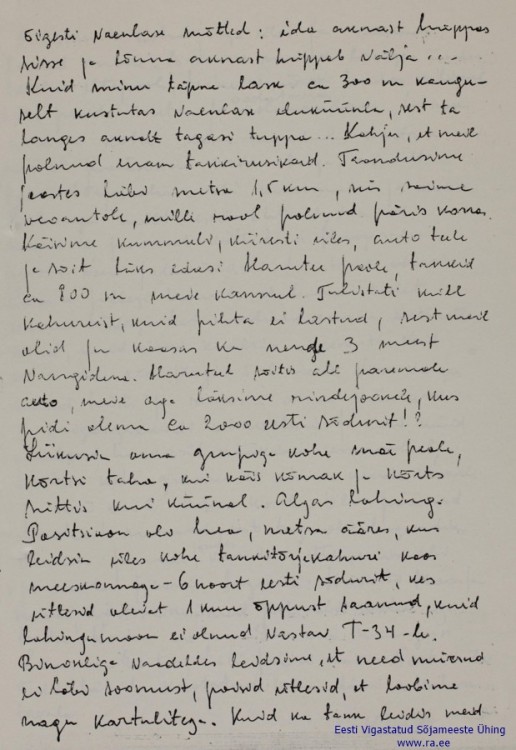 õigesti vaenlase mõtted: ida aknast hüppas
sisse ja lõuna aknast hüppab välja ...
Kuid minu täpne lask ca 300 m kaugu-
selt kustutas vaenlase eluküünla, sest ta
langes aknalt tagasi tuppa ... Kahju, et meil
polnud enam tankirusikaid. Taandusime
joostes läbi metsa 1,5 km, siis saime
veoautole, millel rool polnud päris korras.
Käisime kummuli, kiiresti üles, auto teele
ja sõit läks edasi Harutee poole, tankid
ca 800 m meie kannul. Tulistati küll
kahureist, kuid pihta ei lastud, sest meil
olid ju kaasas ka nende 3 meest
vangidena. Harutul sõitis alt paremale
auto, meie aga läksime rindejoonele, kus
pidi olema ca 2000 eesti sõdurit!?
Liikusin oma grupiga kohe mäe peale,
kõrtsi taha, kui käis kõmak ja kõrts
süttis kui küünal. Algas lahing.
Positsioon oli hea, metsa ääres, kus
leidsin üles kohe tankitõrjekahuri koos
meeskonnaga - 6 noort eesti sõdurit, kes
ütlesid olevat 1 kuu õppust saanud, kuid
lahingumoon ei olnud vastav T-34-le.
Binokliga vaadeldes leidsime, et need
ei läbi soomust, poisid ütlesid, et loobime
nagu kartulitega. Kuid ka tank leidis meid
Eesti Vigastatud Sõjameeste Ühing
www.ra.ee